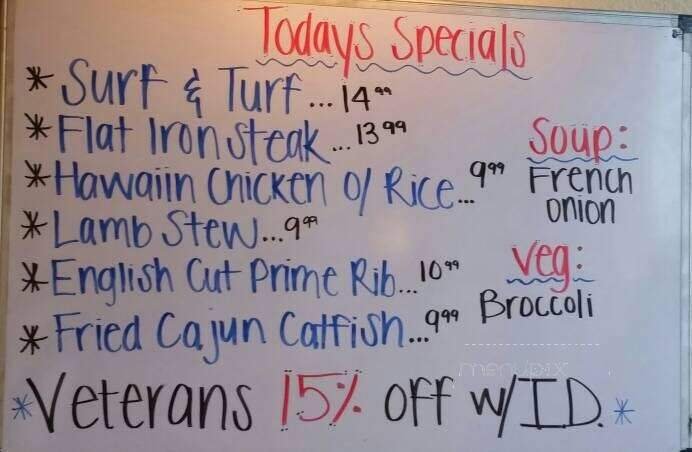 Todays Specials
* Surf & Turf... 14⁹⁹
* Flat Iron Steak... 13⁹⁹
* Hawaiin Chicken o/ Rice... 9⁹⁹
* Lamb Stew... 9⁹⁹
* English Cut Prime Rib... 10⁹⁹
* Fried Cajun Catfish... 9⁹⁹
Soup:
French
onion
Veg:
Broccoli
menupix
* Veterans 15% off w/ I.D. *